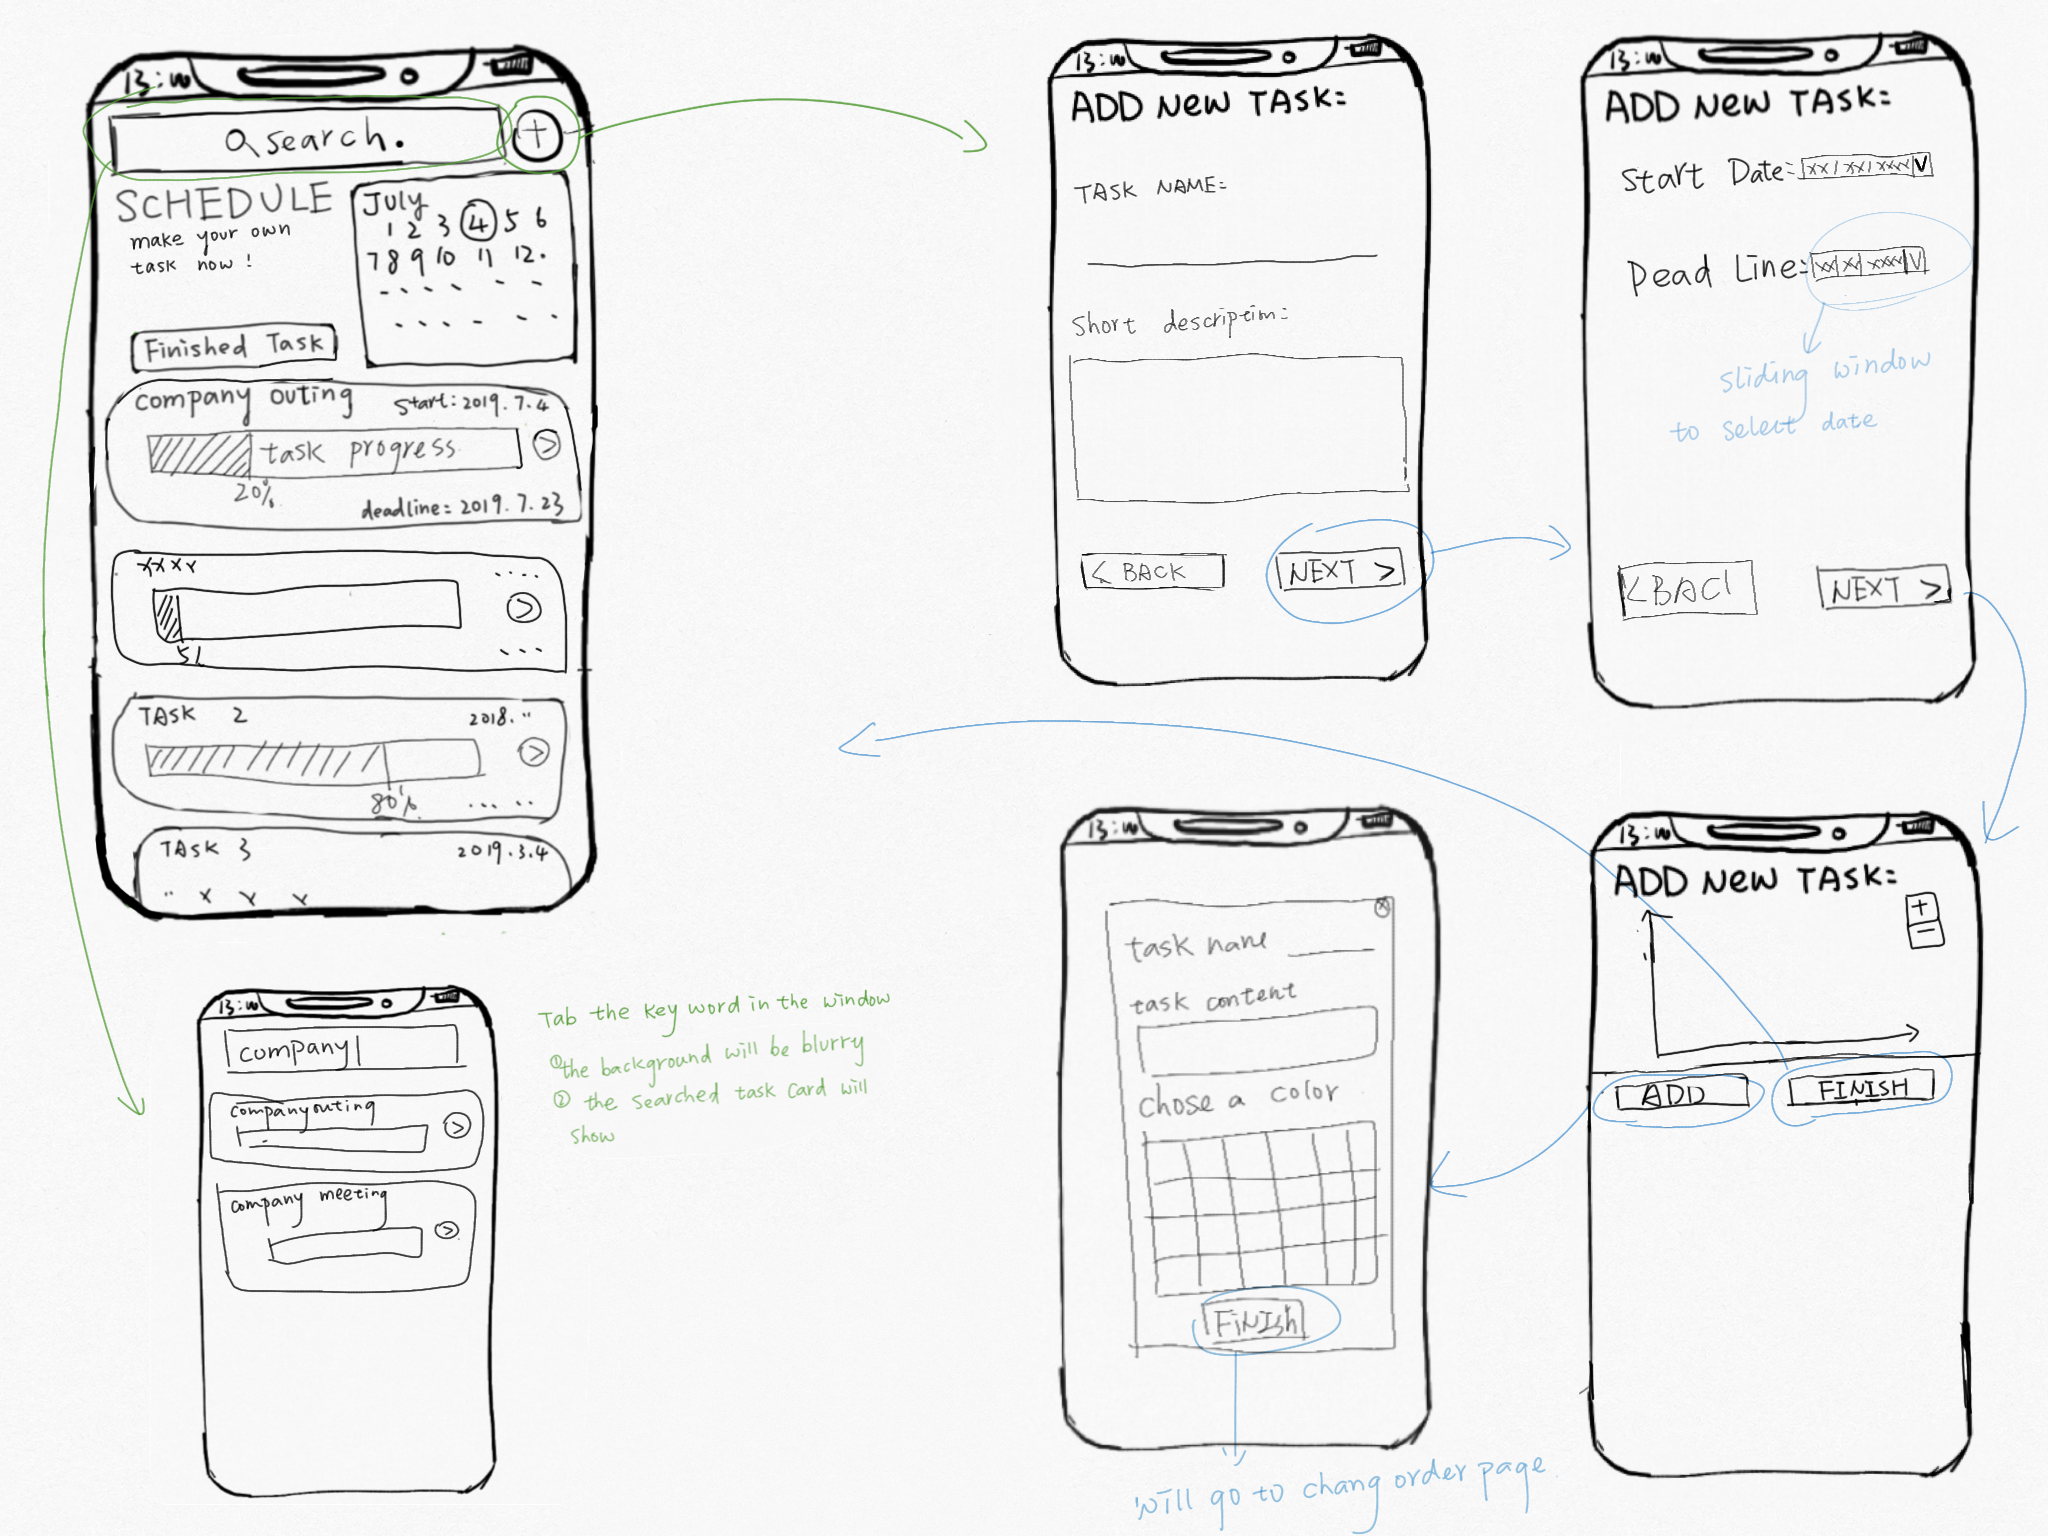 search.
+
SCHEDULE
make your own
task now!
July
1 2 3 4 5 6
7 8 9 10 11 12.
Finished Task
company outing
Start: 2019.7.4
task progress
>
20%
deadline: 2019.7.23
xxxx
>
TASK 2
2018.
>
80%
TASK 3
2019.3.4
company
company outing
>
company meeting
>
Tab the key word in the window
① the background will be blurry
② the searched task card will
show
ADD NEW TASK:
TASK NAME:
Short description:
< BACK
NEXT >
ADD NEW TASK:
Start Date: xx/xx/xxxx V
Dead Line: xx/xx/xxxx V
sliding window
to select date
<BACK
NEXT >
task name
task content
chose a color
FINISH
will go to chang order page
ADD NEW TASK:
+
-
ADD
FINISH